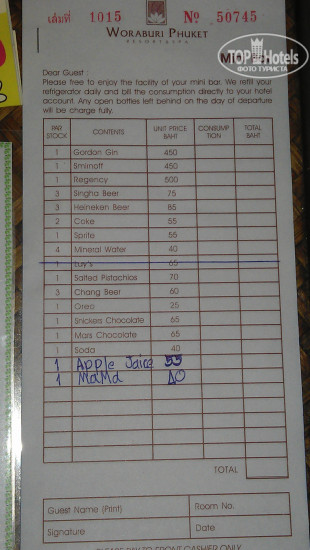 เล่มที่ 1015 № 50745
WORABURI PHUKET
RESORT & SPA
TOP Hotels
ФОТО ТУРИСТА
Dear Guest :
Please to enjoy the facility of your mini bar. We refill your
refrigerator daily and bill the consumption directly to your hotel
account. Any open bottles left behind on the day of departure
will be charge fully.
PAR STOCK CONTENTS UNIT PRICE BAHT CONSUMP TION TOTAL BAHT
1 Gordon Gin 450
1 Smirnoff 450
1 Regency 600
3 Singha Beer 75
3 Heineken Beer 85
2 Coke 55
1 Sprite 55
4 Mineral Water 40
1 Lay's 65
1 Salted Pistachios 70
3 Chang Beer 60
1 Oreo 25
1 Snickers Chocolate 65
1 Mars Chocolate 65
1 Soda 40
1 Apple Juice 55
1 MaMa 40
TOTAL
Guest Name (Print) Room No.
Signature Date
PLEASE PAY TO FRONT CASHIER ONLY